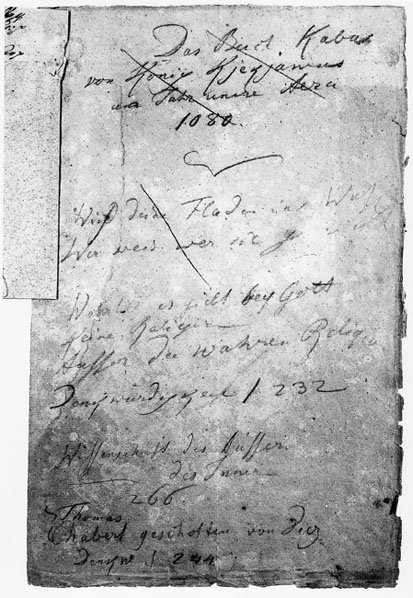 Das Buch. Kabus
von König Kjekjawus
um Jahr unsre Aera
1080.
Wirf deine Fladen ins Wass
Wer weis wer sie
es giebt bey Gott
keine Religion
Ausser der wahren Religio
Denkwürdigkeit I 232
Wissenschaft des Äusser.
des Innern
266
Thomas
Chabert gescholten von Diez
Denkw. I 244